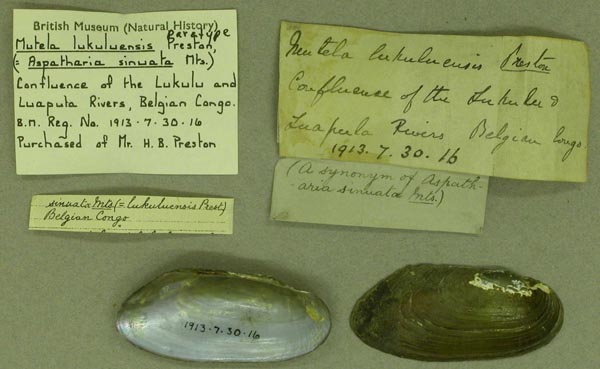 British Museum (Natural History)
paratype
Mutela lukuluensis Preston,
(= Aspatharia sinuata Mts.)
Confluence of the Lukulu and
Luaputa Rivers, Belgian Congo.
B.M. Reg. No. 1913·7·30·16
Purchased of Mr. H.B. Preston
Mutela lukuluensis Preston
Confluence of the Lukulu &
Luapula Rivers Belgian Congo.
1913.7.30.16
(A synonym of Aspath-
aria sinuata Mts.)
sinuata Mts (= lukuluensis Prest)
Belgian Congo
1913·7·30·16